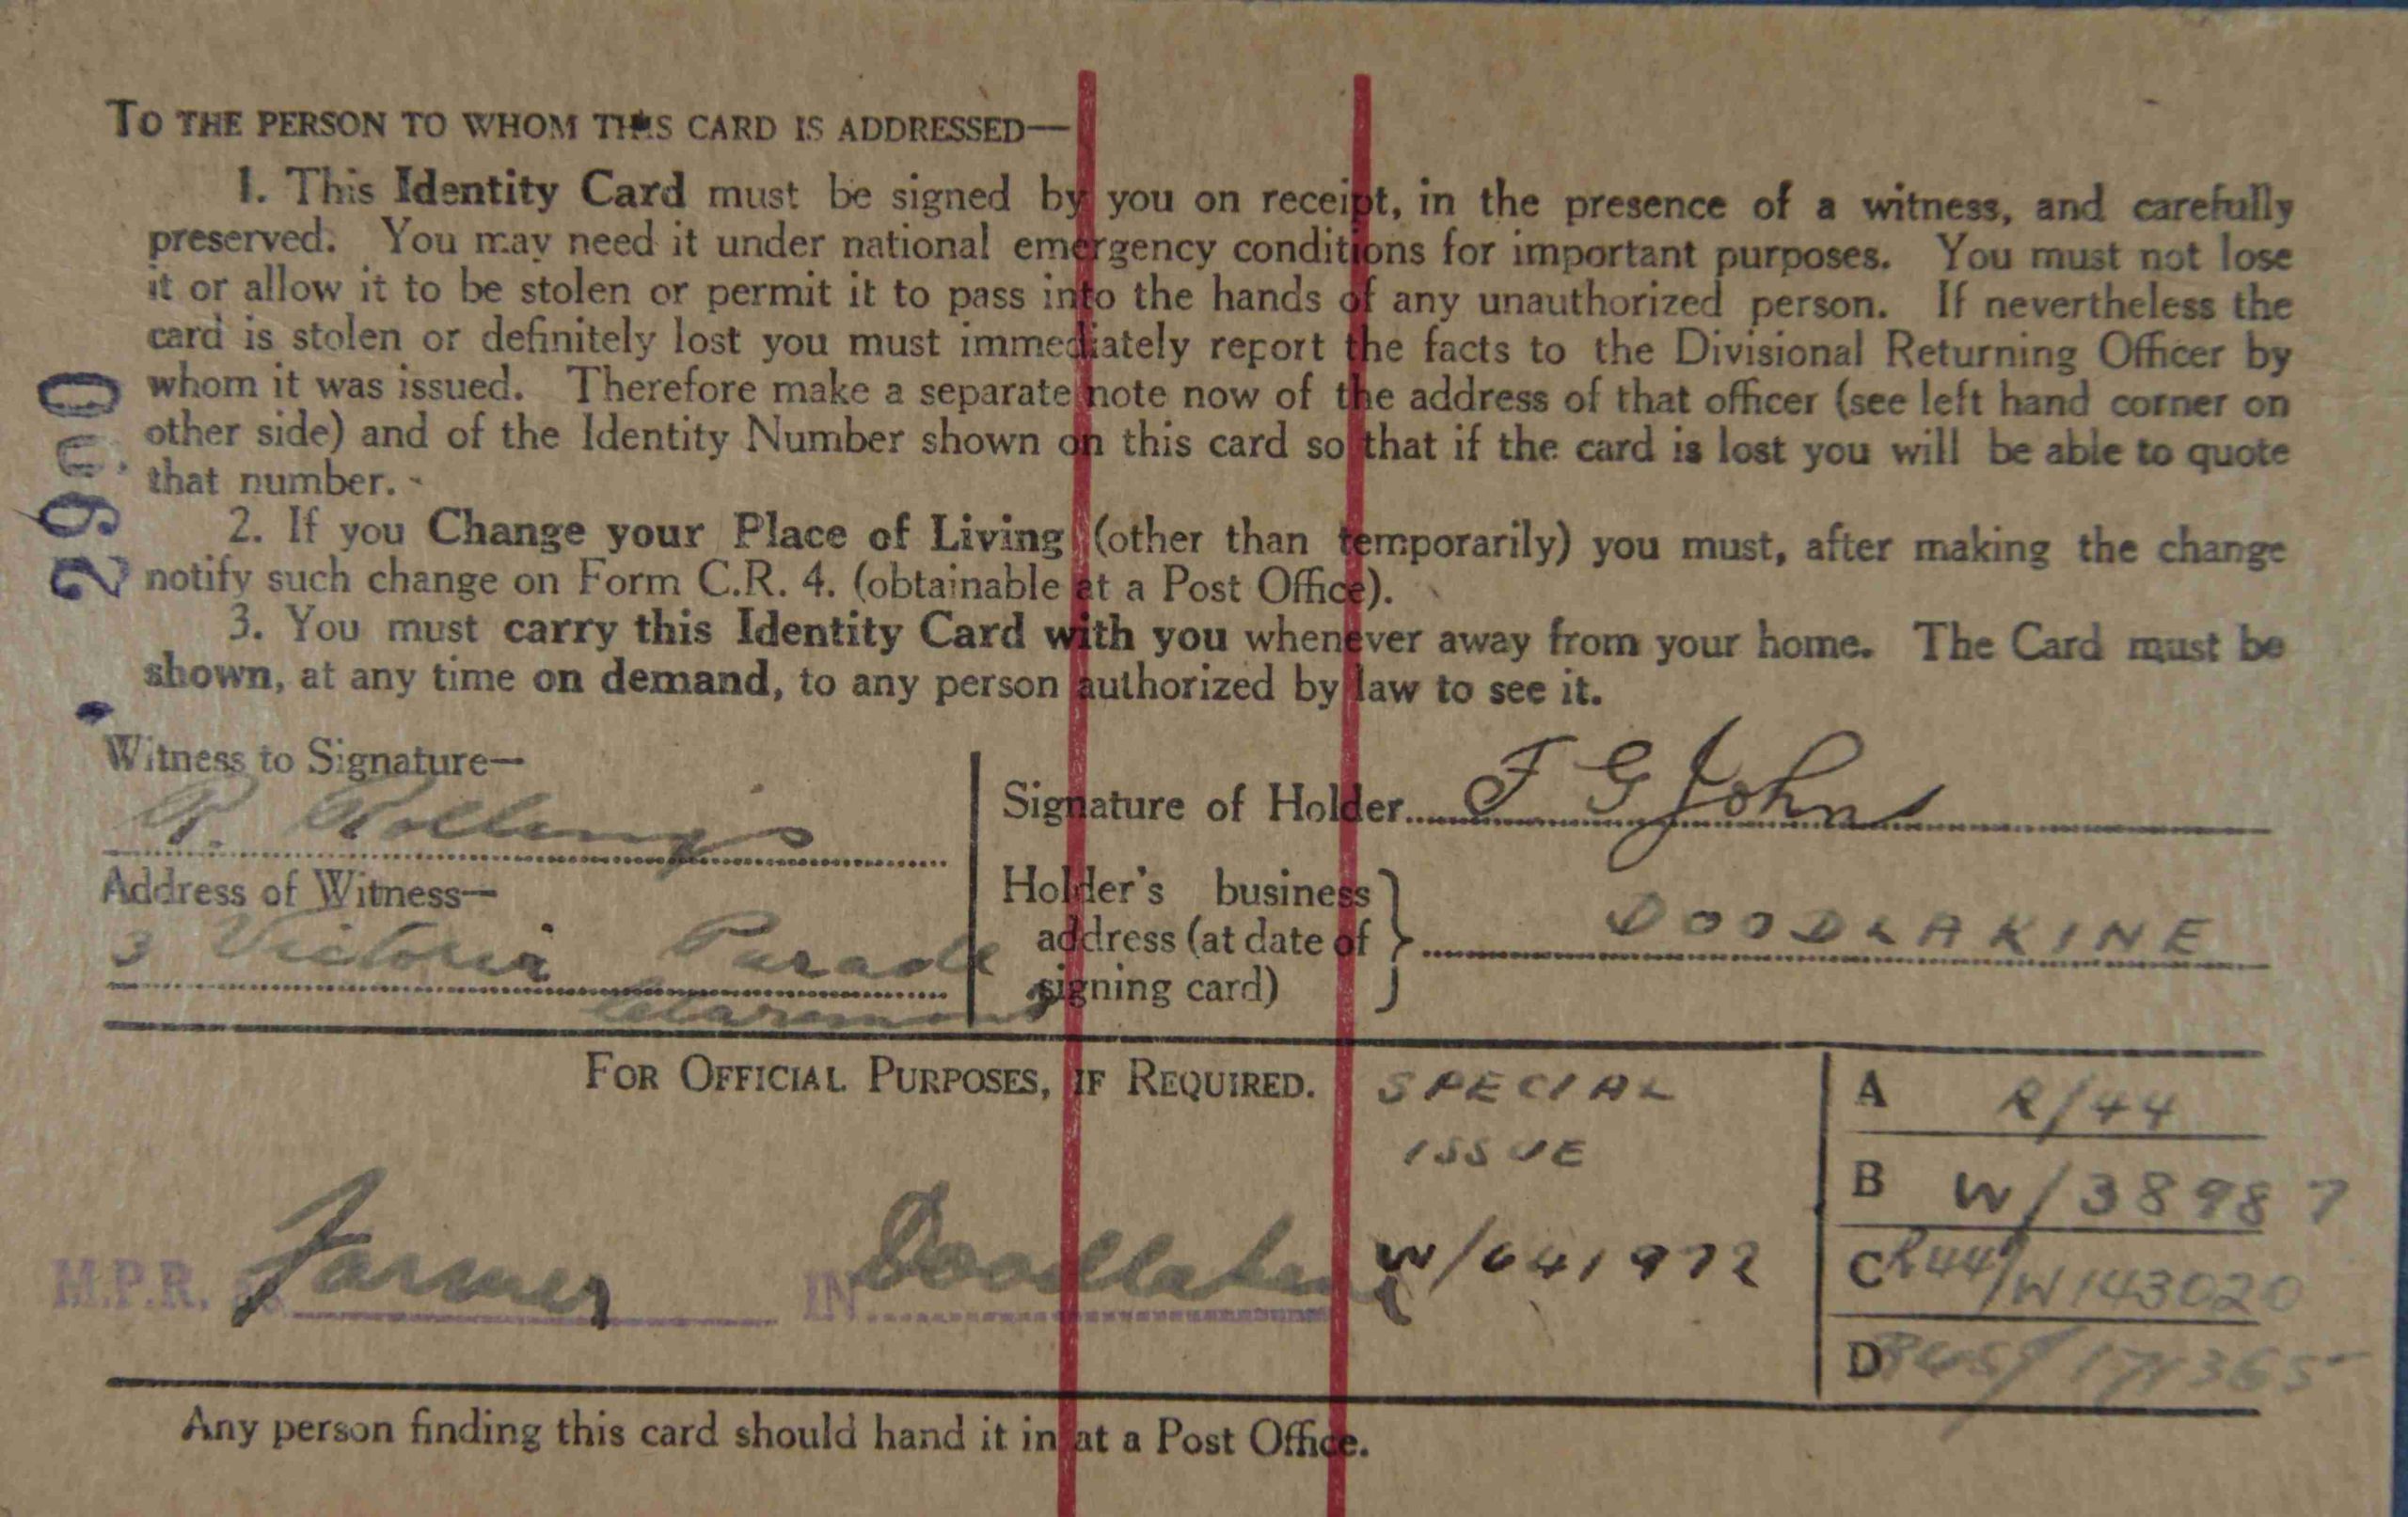 TO THE PERSON TO WHOM THIS CARD IS ADDRESSED—
1. This Identity Card must be signed by you on receipt, in the presence of a witness, and carefully
preserved. You may need it under national emergency conditions for important purposes. You must not lose
it or allow it to be stolen or permit it to pass into the hands of any unauthorized person. If nevertheless the
card is stolen or definitely lost you must immediately report the facts to the Divisional Returning Officer by
whom it was issued. Therefore make a separate note now of the address of that officer (see left hand corner on
other side) and of the Identity Number shown on this card so that if the card is lost you will be able to quote
that number.
2. If you Change your Place of Living (other than temporarily) you must, after making the change
notify such change on Form C.R. 4. (obtainable at a Post Office).
3. You must carry this Identity Card with you whenever away from your home. The Card must be
shown, at any time on demand, to any person authorized by law to see it.
Witness to Signature—
R. Rollings
Address of Witness—
3 Victoria Parade
Claremont
Signature of Holder F G Johns
Holder's business
address (at date of
signing card)
DOODLAKINE
FOR OFFICIAL PURPOSES, IF REQUIRED.
SPECIAL
ISSUE
M.P.R. Farmer IN Doodlakine
W/641972
A R/44
B W/38987
C R44/W143020
D 171365
Any person finding this card should hand it in at a Post Office.